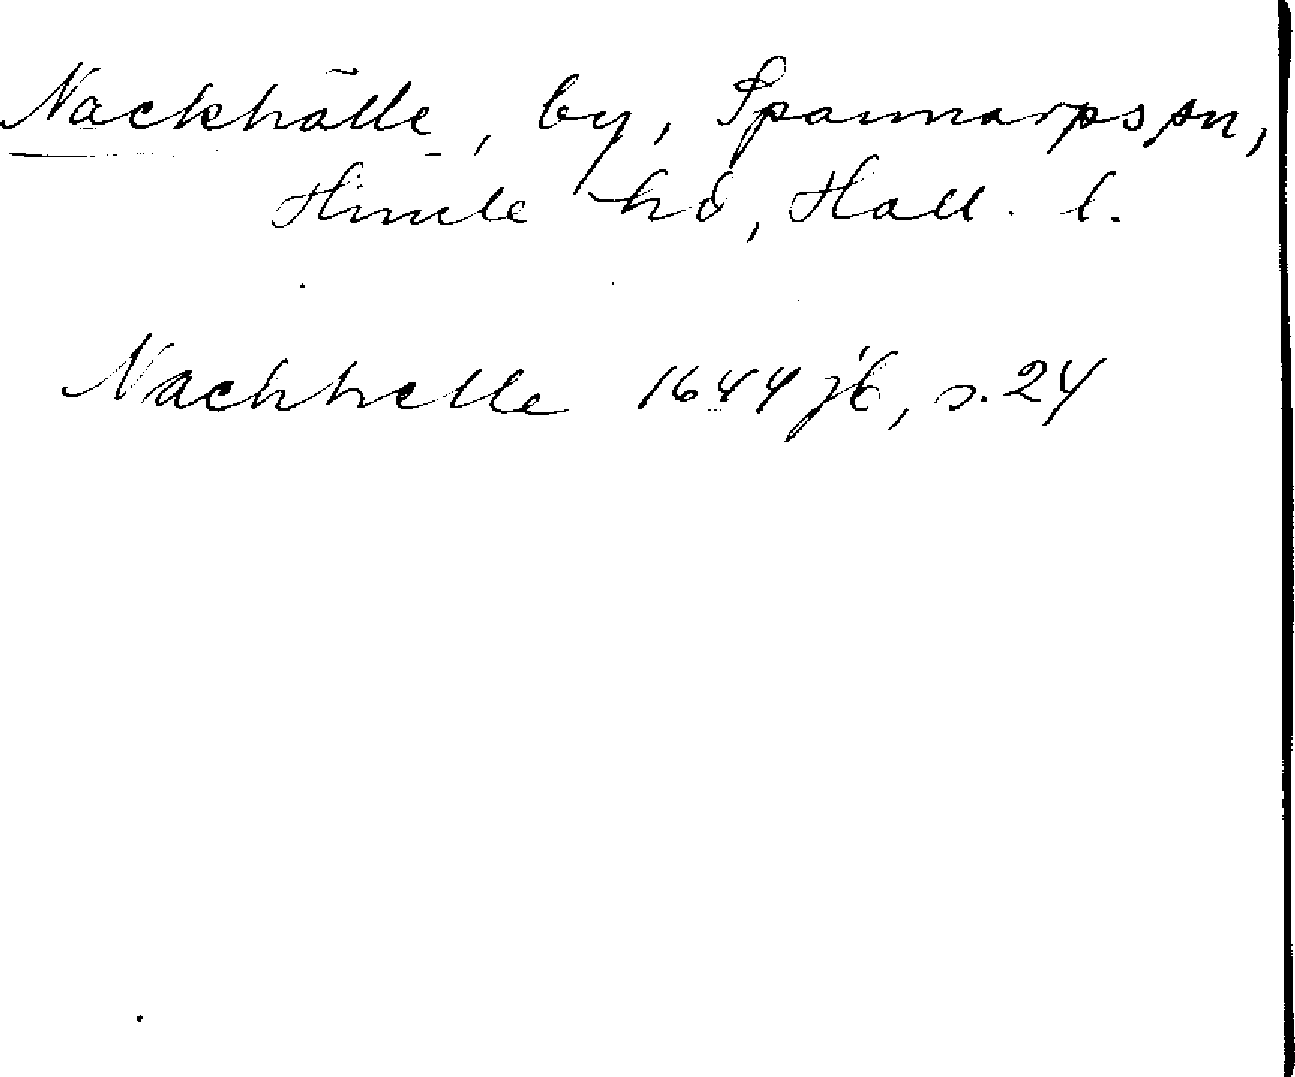 Nackhälle, by, Spannarps sn,
Himle hd, Hall. l.
Nachhelle 1644 jb, s. 24